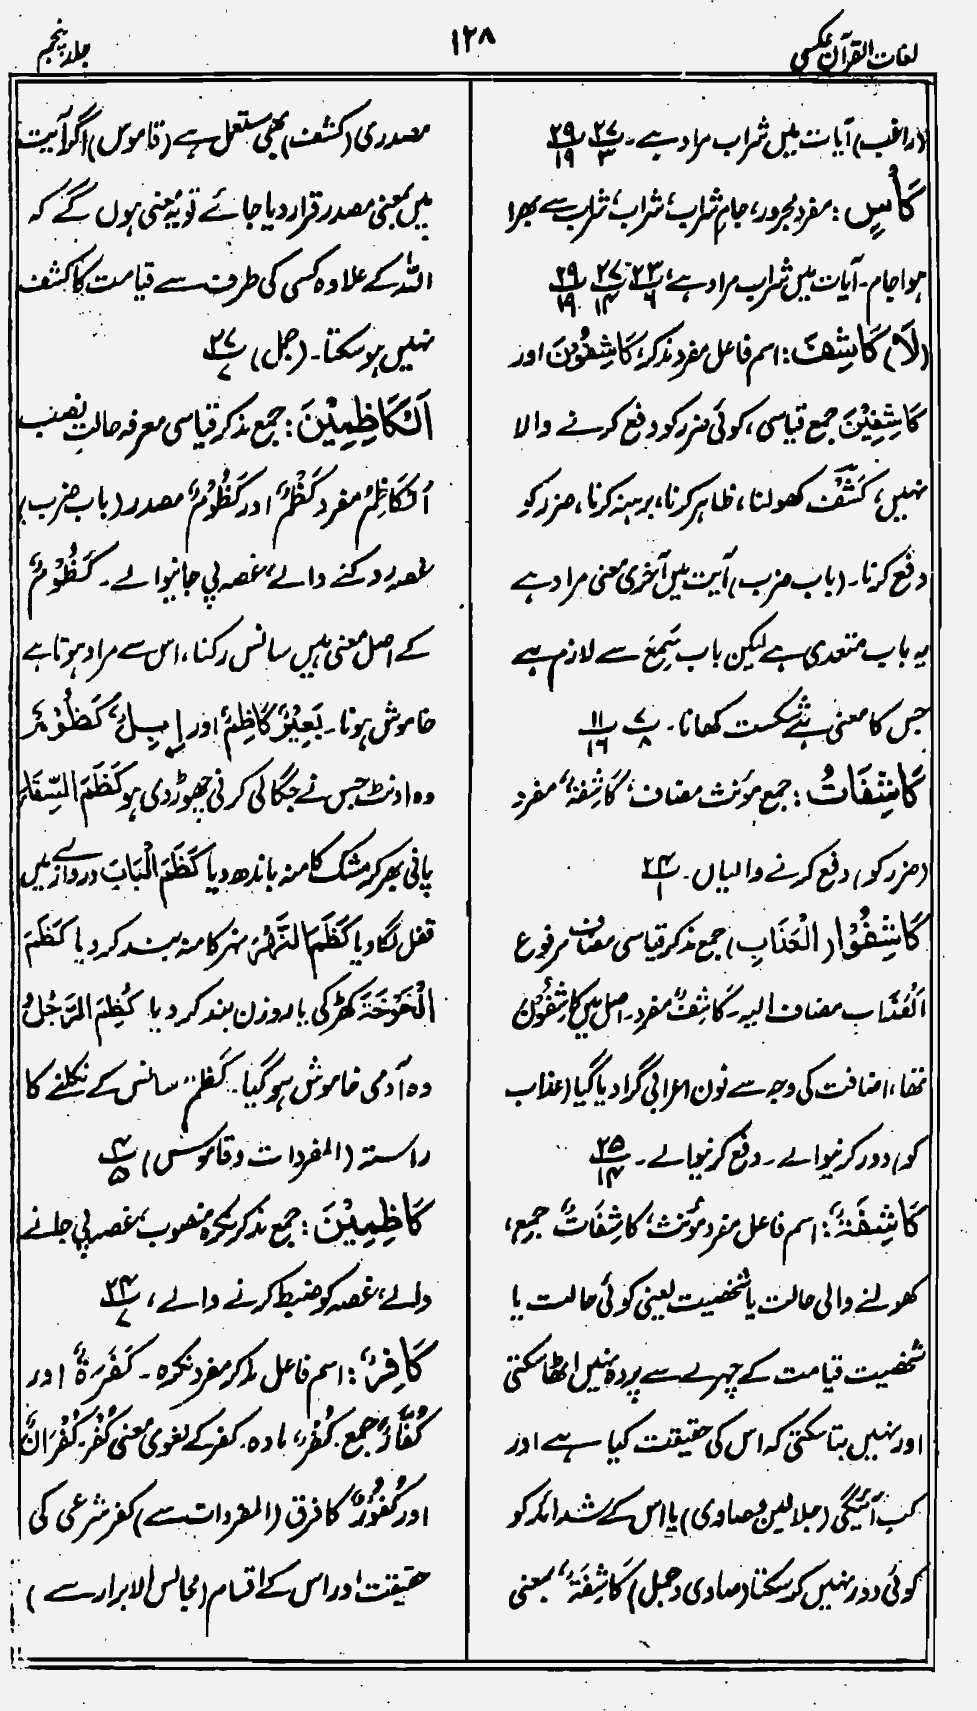 لغات القرآن عکسی
۱۲۸
جلد پنجم
(راغب) آیات میں شراب مراد ہے۔ ۲۷/۳ ۲۹/۱۹
کَأْسٍ: مفرد مجرور، جامِ شراب، شراب، شراب سے بھرا
ہوا جام۔ آیات میں شراب مراد ہے، ۲۳/۶ ۲۷/۱۴ ۲۹/۱۹
(لَا) کَاشِفَ: اسم فاعل مفرد مذکر، کَاشِفُوْنَ اور
کَاشِفِیْنَ جمع قیاسی، کوئی ضرر کو دفع کرنے والا
نہیں، کَشْفٌ کھولنا، ظاہر کرنا، برہنہ کرنا، ضرر کو
دفع کرنا۔ (باب ضرب) آیت میں آخری معنی مراد ہے
یہ باب متعدی ہے لیکن باب سَمِعَ سے لازم ہے
جس کا معنی ہے شکست کھانا۔ ۷/۸ ۱۱/۱۶
کَاشِفَاتُ: جمع مؤنث مضاف، کَاشِفَۃٌ مفرد
(ضرر کو) دفع کرنے والیاں۔ ۲۴/۱
کَاشِفُوْا (الْعَذَابِ) جمع مذکر قیاسی مضاف مرفوع
اَلْعَذَابِ مضاف الیہ۔ کَاشِفٌ مفرد۔ اصل میں کَاشِفُوْنَ
تھا، اضافت کی وجہ سے نون اعرابی گرا دیا گیا (عذاب
کو) دور کرنیوالے۔ دفع کرنیوالے۔ ۲۵/۱۴
کَاشِفَۃٌ: اسم فاعل مفرد مؤنث، کَاشِفَاتٌ جمع،
کھولنے والی حالت یا شخصیت یعنی کوئی حالت یا
شخصیت قیامت کے چہرے سے پردہ نہیں اٹھا سکتی
اور نہیں بتا سکتی کہ اس کی حقیقت کیا ہے اور
کب آئیگی (جلالین وصاوی) یا اس کے شدائد کو
کوئی دور نہیں کر سکتا (صاوی وجمل) کَاشِفَۃٌ بمعنی
مصدری (کشف) بھی مستعمل ہے (قاموس) اگر آیت
میں بمعنی مصدر قرار دیا جائے تو یہ معنی ہوں گے کہ
اللہ کے علاوہ کسی کی طرف سے قیامت کا کشف
نہیں ہو سکتا۔ (جمل) ۲۷/۷
اَلْکَاظِمِیْنَ: جمع مذکر قیاسی معرفہ حالت نصب
اَلْکَاظِمُ مفرد کَظْمٌ اور کُظُوْمٌ مصدر (باب ضرب)
غصہ روکنے والے، غصہ پی جانیوالے۔ کُظُوْمٌ
کے اصل معنی ہیں سانس رکنا، اس سے مراد ہوتا ہے
خاموش ہونا۔ بَعِیْرٌ کَاظِمٌ اور اِبِلٌ کُظُوْمٌ
وہ اونٹ جس نے جگالی کرنی چھوڑ دی ہو کَظَمَ السِّقَاءَ
پانی بھر کر مشک کا منہ باندھ دیا کَظَمَ الْبَابَ دروازے میں
قفل لگا دیا کَظَمَ النَّہْرَ نہر کا منہ بند کر دیا کَظَمَ
الْخَوْخَۃَ کھڑکی یا روزن بند کر دیا کُظِمَ الرَّجُلُ
وہ آدمی خاموش ہو گیا۔ کَظَمٌ سانس کے نکلنے کا
راستہ (المفردات وقاموس) ۴/۵
کَاظِمِیْنَ: جمع مذکر نکرہ منصوب، غصہ پی جانے
والے، غصہ کو ضبط کرنے والے، ۲۴/۷
کَافِرٌ: اسم فاعل مذکر مفرد نکرہ۔ کَفَرَۃٌ اور
کُفَّارٌ جمع۔ کُفْرٌ، مادہ۔ کفر کے لغوی معنی کُفْرٌ۔ کُفْرَانٌ
اور کُفُوْرٌ کا فرق (المفردات سے) کفر شرعی کی
حقیقت اور اس کے اقسام (مجالس الابرار سے)